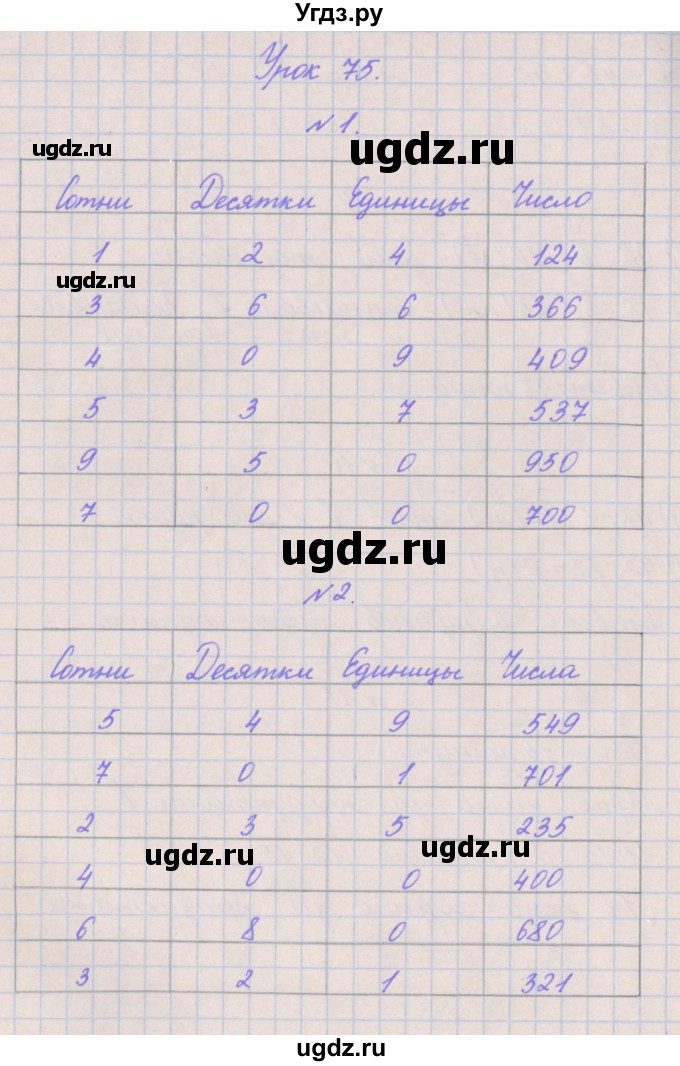 Угдз.ру
Урок 75.
№1.
ugdz.ru
ugdz.ru
Сотни Десятки Единицы Число
1 2 4 124
ugdz.ru
3 6 6 366
4 0 9 409
5 3 7 537
9 5 0 950
7 0 0 700
ugdz.ru
№2.
Сотни Десятки Единицы Числа
5 4 9 549
7 0 1 701
2 3 5 235
ugdz.ru
ugdz.ru
4 0 0 400
6 8 0 680
3 2 1 321
ugdz.ru